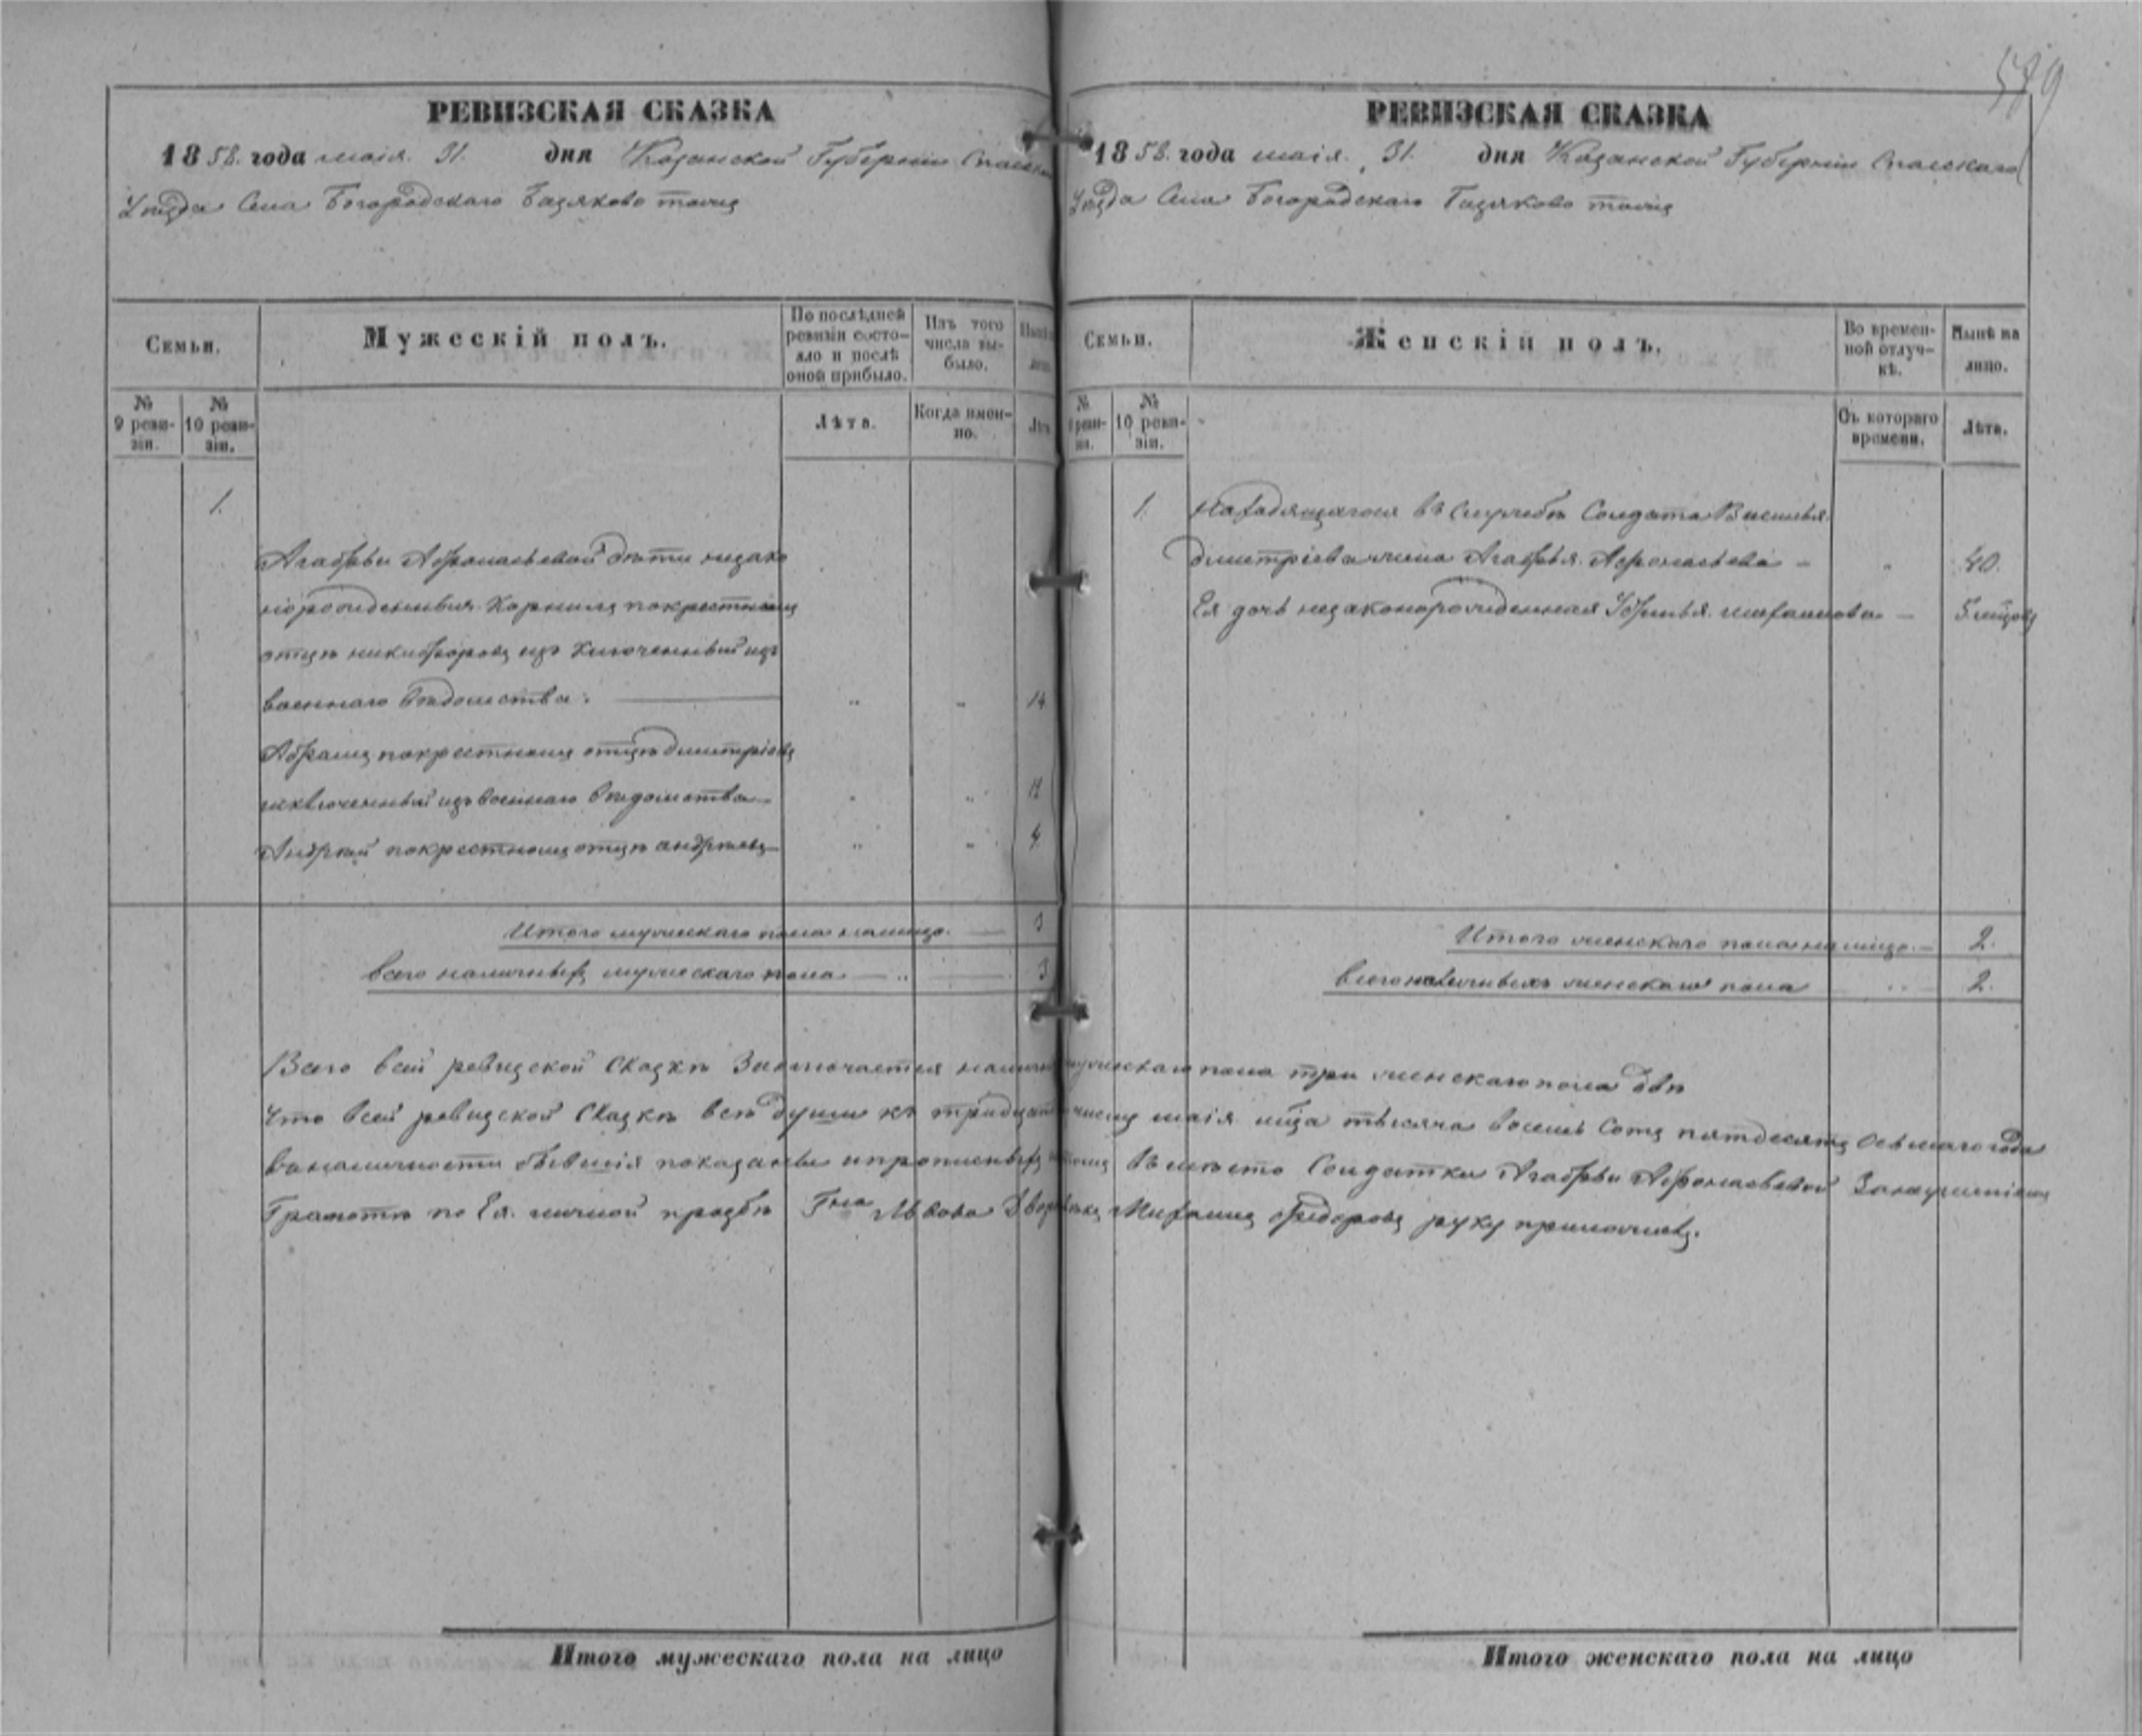 579
РЕВИЗСКАЯ СКАЗКА
1858. года маія. 31. дня Казанской Губерніи Спаскаго
Уѣзда Села Богородскаго Базяково тожъ
Семьи.
Мужескій полъ.
По послѣдней ревизіи состояло и послѣ оной прибыло.
Изъ того числа выбыло.
№ 9 ревизіи.
№ 10 ревизіи.
Лѣта.
Когда именно.
Лѣта
1.
Агафьи Афонасьевой дѣти незако
норожденныя Корнилъ покрестному
отцѣ никифоровъ изключенный изъ
военнаго вѣдомства.
14
Абрамъ покрестному отцѣ дмитріевъ
исключенный изъ военнаго вѣдомства
11
Андрей покрестному отцѣ андреевъ
4
Итого мужескаго пола налицо. 3
Всего наличныхъ мужескаго пола 3
РЕВИЗСКАЯ СКАЗКА
1858. года маія. 31. дня Казанской Губерніи Спаскаго
Уѣзда Села Богородскаго Базяково тожъ
Семьи.
Женскій полъ.
Во временной отлучкѣ.
Нынѣ на лицо.
№ 10 ревизіи.
Съ котораго времени.
Лѣта.
1. Находящагося въ Службѣ Солдата Василья
дмитріева жена Агафья Афонасьева 40.
Ея дочь незаконорожденная Софья михаилова 5 мѣсяцовъ
Итого женскаго пола налицо. 2.
Всего наличныхъ женскаго пола 2.
Всего всей ревизской Сказкѣ Заключается мужескаго пола три женскаго пола двѣ
Что всей ревизской Сказкѣ всѣ души къ числу маія м-ца тысяча восемь сотъ пятдесятъ осьмаго года
в наличности показаны въ мѣсто Солдатки Агафьи Афонасьевой Занеумѣніемъ
Грамотѣ по Ея личной прозбѣ Г-на Львова Михаилъ Федоровъ руку приложилъ.
Итого мужескаго пола на лицо
Итого женскаго пола на лицо